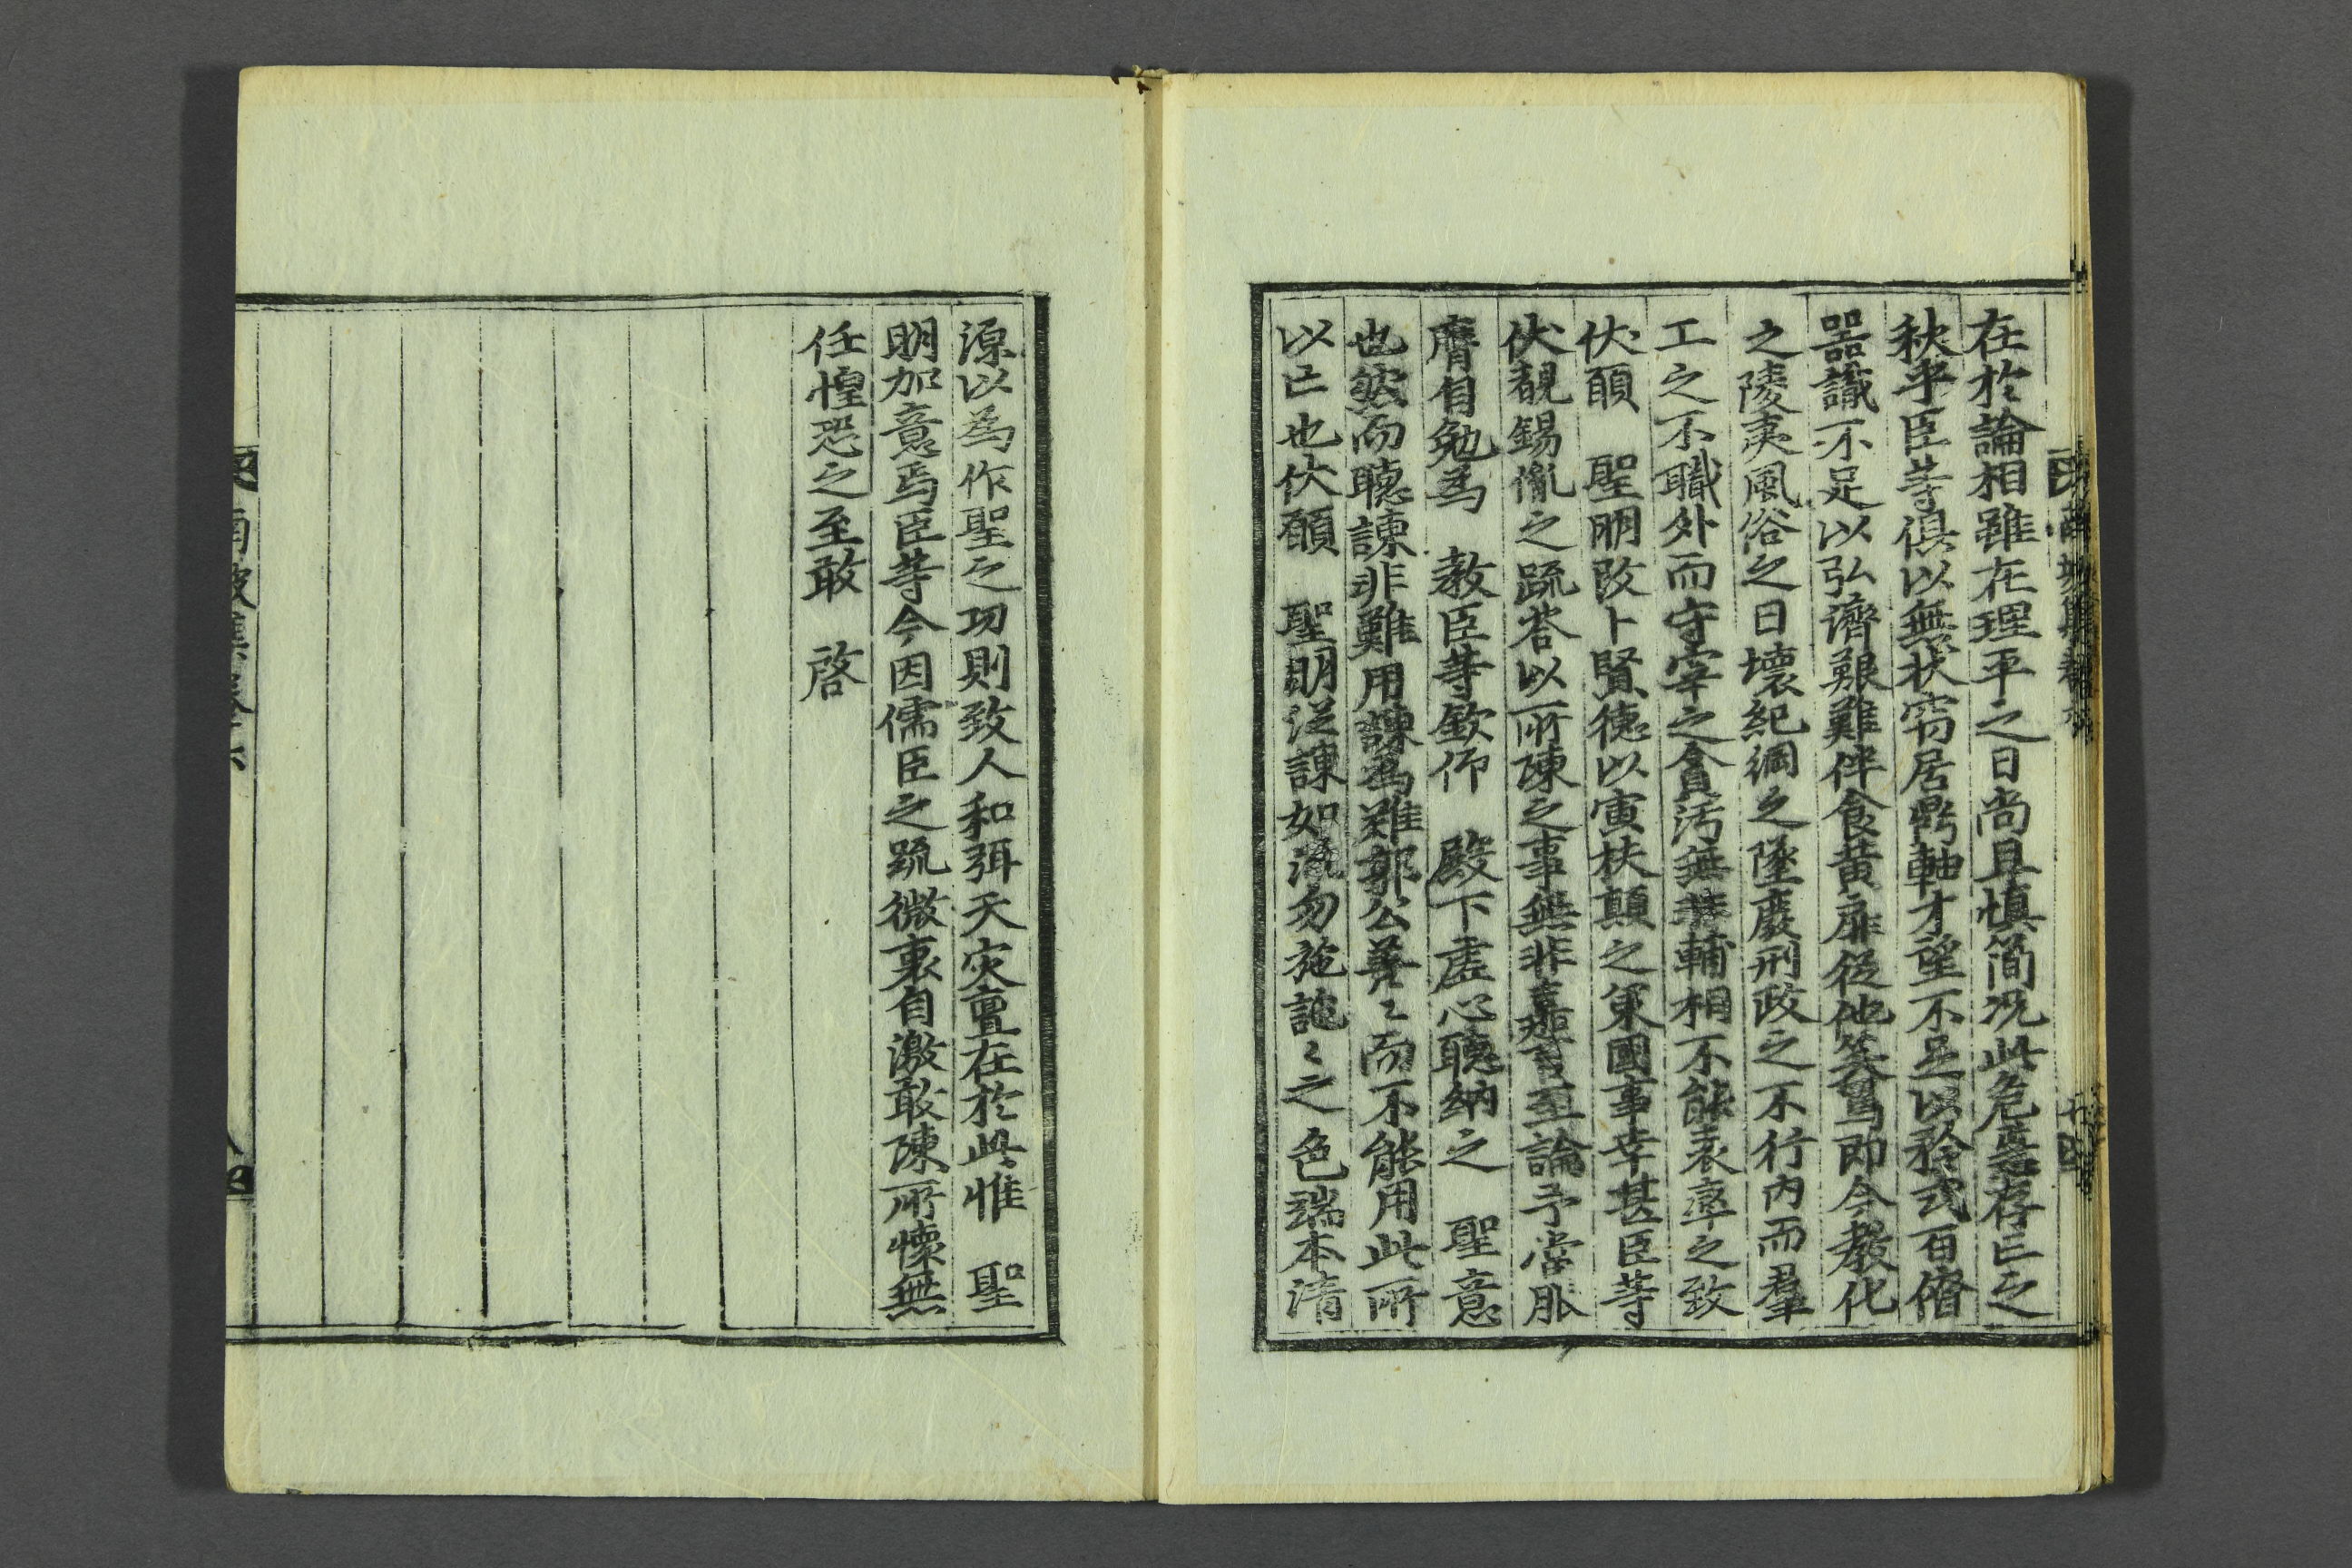 在於論相雖在理平之日尚且愼簡况此危急存亡之
秋乎臣等俱以無狀窃居鼎軸才望不足以矜式百僚
器識不足以弘濟艱難伴食黃扉從他笑罵即今敎化
之陵夷風俗之日壞紀綱之墜廢刑政之不行內而羣
工之不職外而守宰之貪汚無非輔相不能表率之致
伏願　聖明改卜賢德以寅扶顚之策國事幸甚臣等
伏覩錫胤之疏荅以所陳之事無非嘉言至論予當服
膺自勉爲　敎臣等欽仰　殿下虛心聽納之　聖意
也然而聽諫非難用諫爲難郭公善〻而不能用此所
以亡也伏願　聖明從諫如流勿施訑〻之色端本清
源以爲作聖之功則致人和弭天灾亶在於此惟　聖
明加意焉臣等今因儒臣之疏微衷自激敢陳所懷無
任惶恐之至敢　啓
南坡集卷六